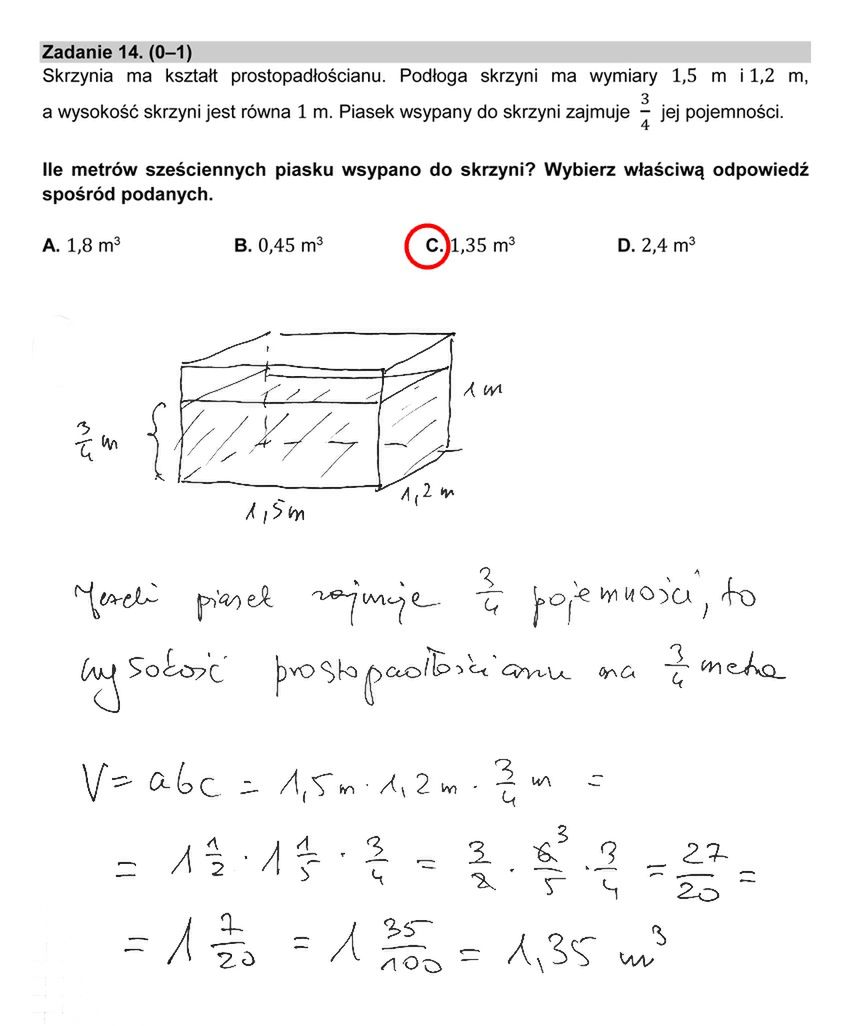 Zadanie 14. (0–1)
Skrzynia ma kształt prostopadłościanu. Podłoga skrzyni ma wymiary 1,5 m i 1,2 m,
a wysokość skrzyni jest równa 1 m. Piasek wsypany do skrzyni zajmuje 3/4 jej pojemności.
Ile metrów sześciennych piasku wsypano do skrzyni? Wybierz właściwą odpowiedź
spośród podanych.
A. 1,8 m³ B. 0,45 m³ C. 1,35 m³ D. 2,4 m³
1 m
3/4 m
1,2 m
1,5 m
Jeżeli piasek zajmuje 3/4 pojemności, to
wysokość prostopadłościanu ma 3/4 metra
V = abc = 1,5 m · 1,2 m · 3/4 m =
= 1 1/2 · 1 1/5 · 3/4 = 3/2 · 6³/5 · 3/4 = 27/20 =
= 1 7/20 = 1 35/100 = 1,35 m³